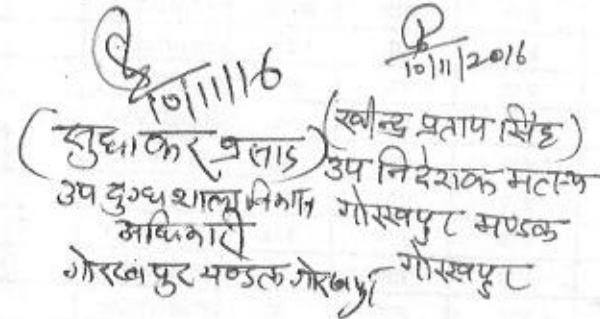 10/11/16
(सुधाकर प्रसाद)
उप दुग्धशाला विकास
अधिकारी
गोरखपुर मण्डल गोरखपुर
10/11/2016
(रवीन्द्र प्रताप सिंह)
उप निदेशक मत्स्य
गोरखपुर मण्डल
गोरखपुर